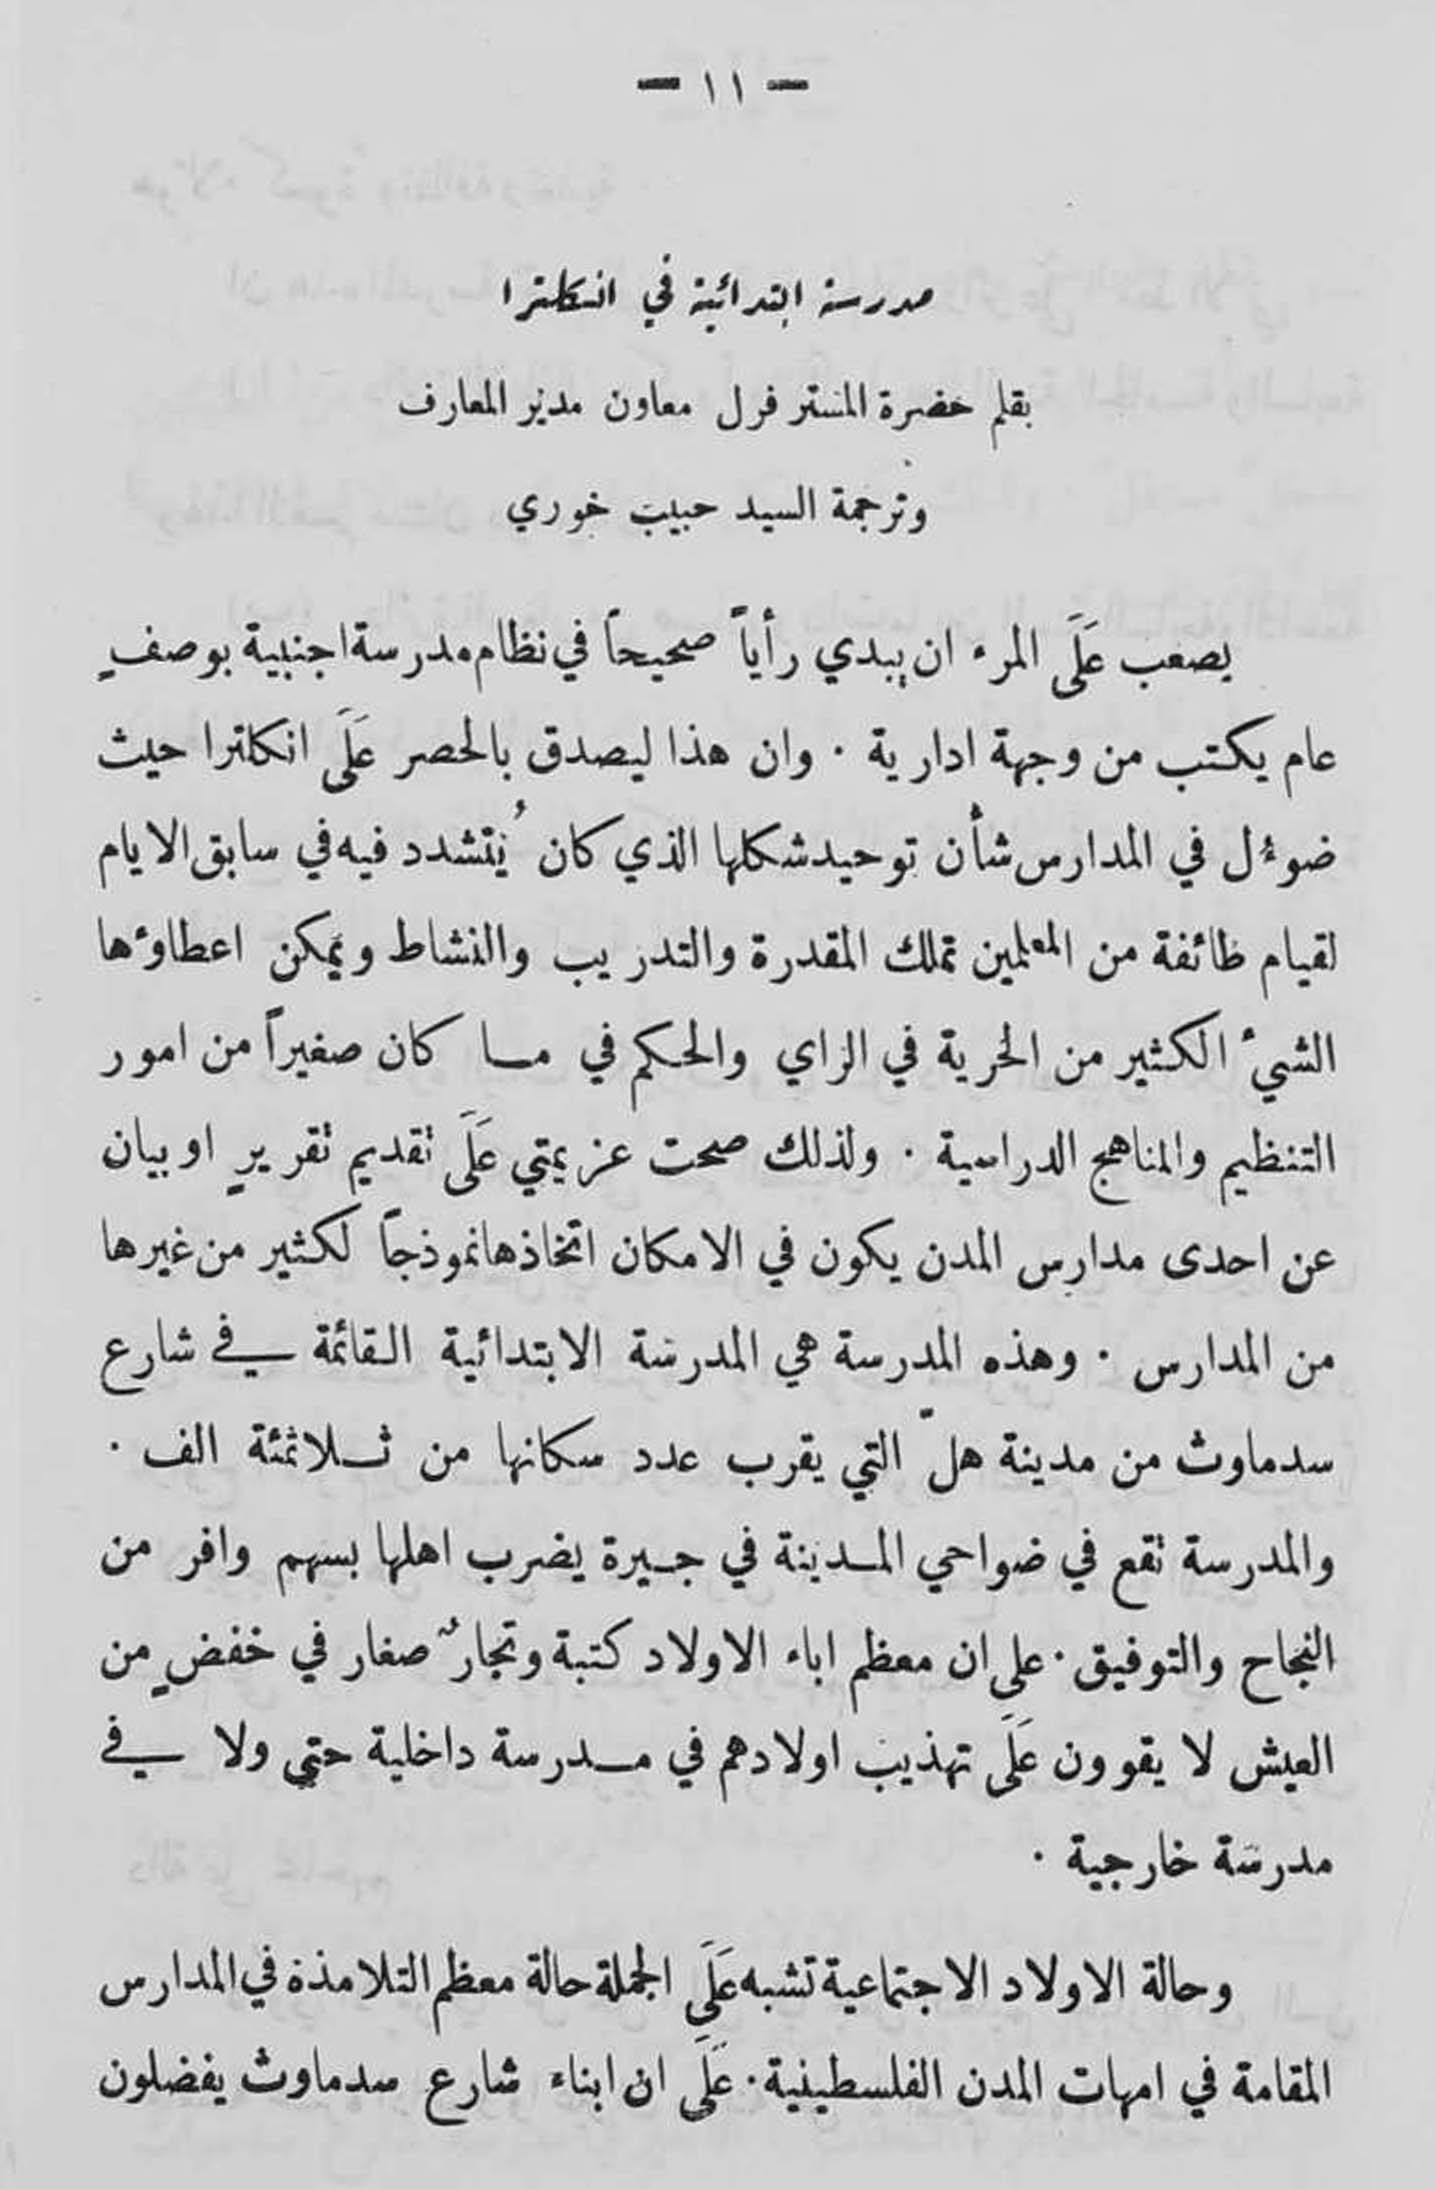 — ١١ —
مدرسة ابتدائية في انكلترا
بقلم حضرة المستر فرل معاون مدير المعارف
وترجمة السيد حبيب خوري
يصعب عَلَى المرء ان يبدي رأياً صحيحاً في نظام مدرسة اجنبية بوصفٍ
عام يكتب من وجهة ادارية . وان هذا ليصدق بالحصر عَلَى انكلترا حيث
ضوءُل في المدارس شأن توحيد شكلها الذي كان يُتشدد فيه في سابق الايام
لقيام طائفة من المعلمين تملك المقدرة والتدريب والنشاط ويمكن اعطاوءها
الشيءُ الكثير من الحرية في الراي والحكم في مـا كان صغيراً من امور
التنظيم والمناهج الدراسية . ولذلك صحت عزيمتي عَلَى تقديم تقريرٍ او بيان
عن احدى مدارس المدن يكون في الامكان اتخاذها نموذجاً لكثير من غيرها
من المدارس . وهذه المدرسة هي المدرسة الابتدائية القائمة في شارع
سدماوث من مدينة هلّ التي يقرب عدد سكانها من ثـلاثمئة الف .
والمدرسة تقع في ضواحي المـدينة في جـيرة يضرب اهلها بسهم وافر من
النجاح والتوفيق . على ان معظم اباء الاولاد كتبة وتجارٌ صغار في خفضٍ من
العيش لا يقوون عَلَى تهذيب اولادهم في مـدرسة داخلية حتى ولا في
مدرسة خارجية .
وحالة الاولاد الاجتماعية تشبه عَلَى الجملة حالة معظم التلامذة في المدارس
المقامة في امهات المدن الفلسطينية . عَلَى ان ابناء شارع سدماوث يفضلون